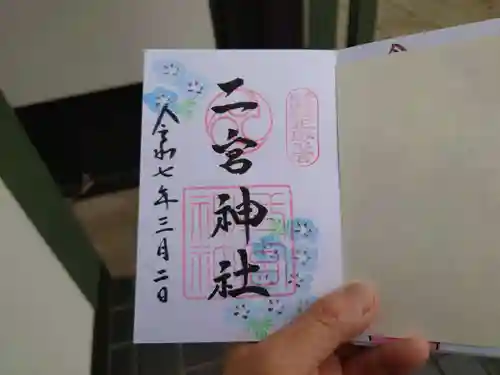 二宮神社
令和七年三月二日